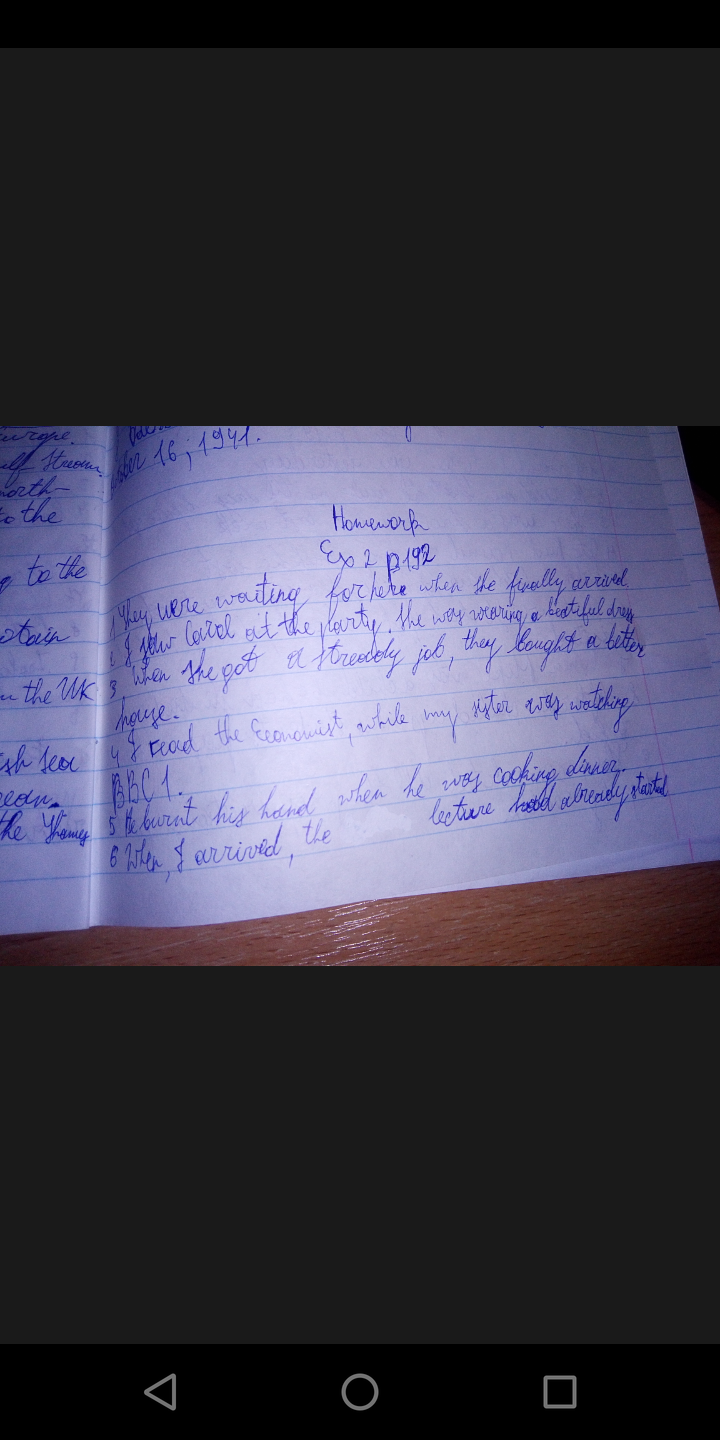 Europe.
ulf Stream.
north-
to the
to the
in the UK
ish Sea
the Thames
ober 16, 1941.
Homework
Ex 2 p 192
1 They were waiting for here when she finally arrived.
2 I saw Carol at the party. She was wearing a beatiful dress
3 When she got a streaddy job, they bought a better
house.
4 I read the Economist, while my sister was watching
BBC 1.
5 He burnt his hand when he was cooking dinner.
6 When, I arrived, the lecture had already started